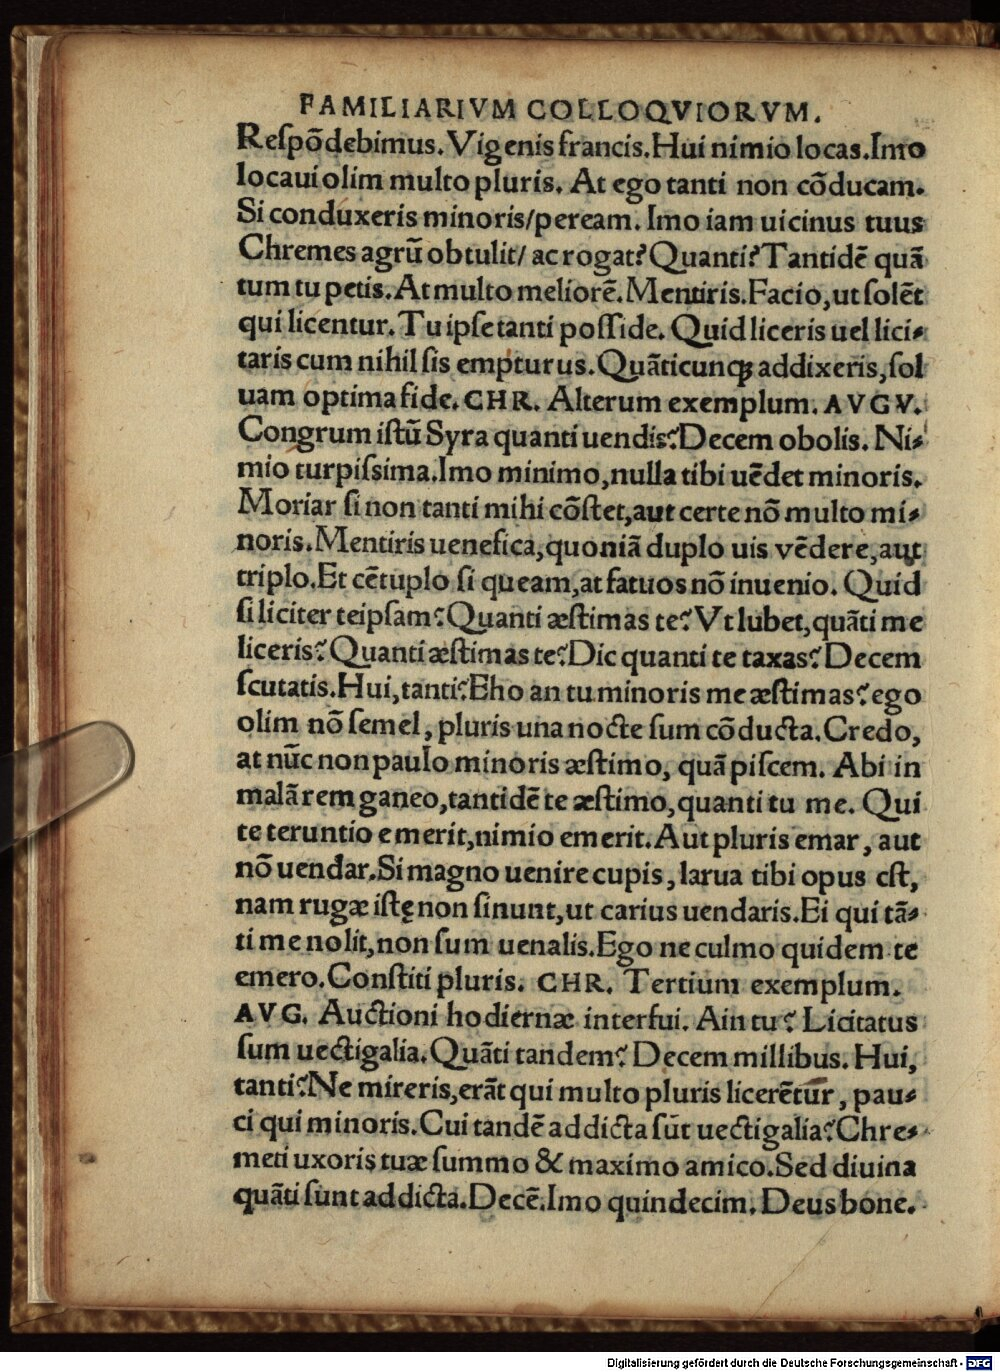 FAMILIARIVM COLLOQVIORVM.
Reſpõdebimus. Vigenis francis. Hui nimio locas. Imo
locaui olim multo pluris. At ego tanti non cõducam.
Si conduxeris minoris/peream. Imo iam uicinus tuus
Chremes agrũ obtulit/ ac rogat? Quanti? Tantidẽ quã
tum tu petis. At multo meliorẽ. Mentiris. Facio, ut ſolẽt
qui licentur. Tu ipſe tanti poſſide. Quid liceris uel lici⸗
taris cum nihil ſis empturus. Quãticunqꝫ addixeris, ſol
uam optima fide. CHR. Alterum exemplum. AVGV.
Congrum iſtũ Syra quanti uendis? Decem obolis. Ni⸗
mio turpiſsima. Imo minimo, nulla tibi uẽdet minoris.
Moriar ſi non tanti mihi cõſtet, aut certe nõ multo mi⸗
noris. Mentiris uenefica, quoniã duplo uis vẽdere, aut
triplo. Et cẽtuplo ſi queam, at fatuos nõ inuenio. Quid
ſi liciter teipſam? Quanti æſtimas te? Vt lubet, quãti me
liceris? Quanti æſtimas te? Dic quanti te taxas? Decem
ſcutatis. Hui, tanti? Eho an tu minoris me æſtimas? ego
olim nõ ſemel, pluris una nocte ſum cõducta. Credo,
at nũc non paulo minoris æſtimo, quã piſcem. Abi in
malã rem ganeo, tantidẽ te æſtimo, quanti tu me. Qui
te teruntio emerit, nimio emerit. Aut pluris emar, aut
nõ uendar. Si magno uenire cupis, larua tibi opus eſt,
nam rugæ iſtę non ſinunt, ut carius uendaris. Ei qui tã⸗
ti me nolit, non ſum uenalis. Ego ne culmo quidem te
emero. Conſtiti pluris. CHR. Tertium exemplum.
AVG. Auctioni hodiernæ interfui. Ain tu? Licitatus
ſum uectigalia. Quãti tandem? Decem millibus. Hui,
tanti? Ne mireris, erãt qui multo pluris licerẽtur, pau⸗
ci qui minoris. Cui tandẽ addicta ſũt uectigalia? Chre⸗
meti uxoris tuæ ſummo & maximo amico. Sed diuina
quãti ſunt addicta. Decẽ. Imo quindecim. Deus bone.
Digitalisierung gefördert durch die Deutsche Forschungsgemeinschaft - DFG